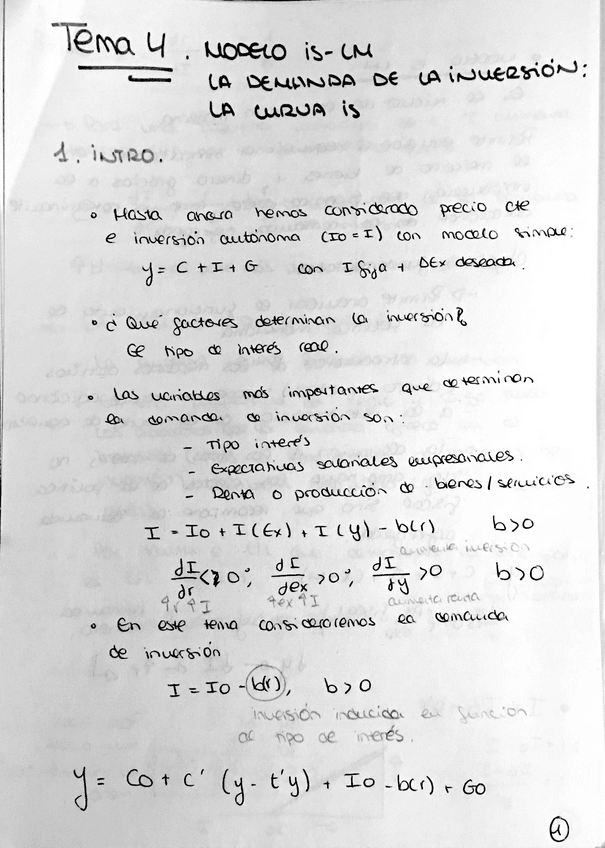 Tema 4. MODELO IS-LM
LA DEMANDA DE LA INVERSIÓN:
LA CURVA IS
1. INTRO.
• Hasta ahora hemos considerado precio cte
e inversión autónoma (Io = I) con modelo simple:
y = C + I + G con I fija + DEx deseada.
• ¿Qué factores determinan la inversión?
El tipo de interés real.
• Las variables más importantes que determinan
la demanda de inversión son:
- Tipo interés
- Expectativas salariales empresariales.
- Renta o producción de bienes/servicios.
I = Io + I(Ex) + I(y) - b(r) b>0
aumenta inversión
dI/dr < 0; dI/dex > 0; dI/dy > 0 b>0
aumenta renta
• En este tema consideraremos la demanda
de inversión
I = Io - b(r), b > 0
inversión inducida en función
del tipo de interés.
y = Co + c' (y - t'y) + Io - b(r) + Go
1